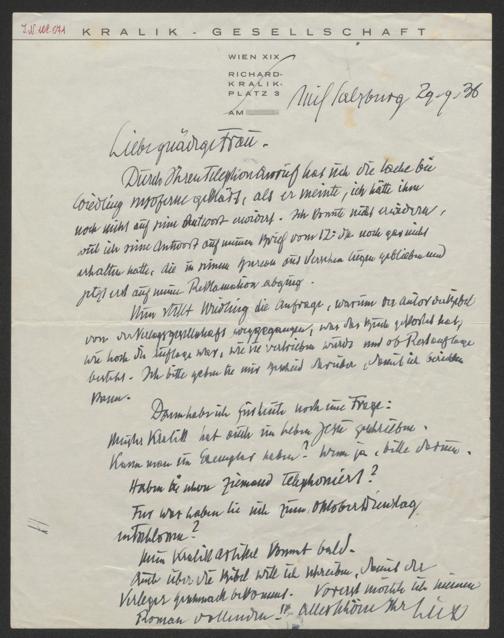 KRALIK - GESELLSCHAFT
WIEN XIX
RICHARD-
KRALIK-
PLATZ 3
AM
Salzburg 29.9.36
Liebe gnädige Frau.
Durch Ihren Telephon Anruf hat sich die Sache bei
insoferne geklärt, als er meinte, ich hätte ihm
noch nicht auf seine Antwort erwidert. Ich konnte nicht erwidern,
weil ich seine Antwort auf meinen Brief vom 12. noch gar nicht
erhalten hatte, die in seinem Bureau aus Versehen liegen geblieben und
jetzt erst auf meine Reklamation abging.
Nun stellt die Anfrage, warum der Autor
von der Verlagsgesellschaft weggegangen, was das Buch gekostet hat,
wie hoch die Auflage war, wie sie vertrieben wurde und ob Restauflage
besteht. Ich bitte geben Sie mir Bescheid darüber, damit ich berichten
kann.
Dann hab ich für heute noch eine Frage:
Kralik hat auch ein Leben Jesu geschrieben.
Kann man ein Exemplar haben? Wenn ja, bitte darum.
Haben Sie schon jemand telephoniert?
Für was haben Sie sich zum Oktober Dienstag
entschlossen?
Mein Kralik Artikel kommt bald.
Auch über die Bibel will ich schreiben, damit der
Verleger Geschmack bekommt. Vorerst möchte ich meinen
Roman vollenden. allerschönst Ihr Lux